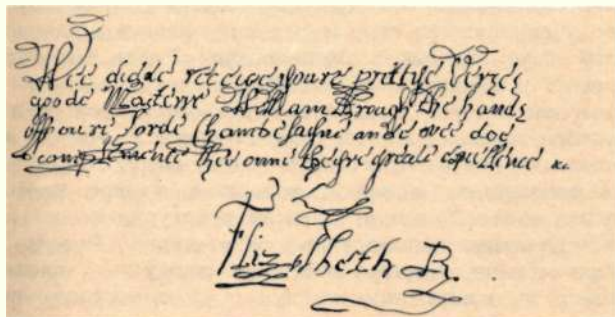 Wee didde receive youre prittye Verses
goode Masterre William through the hands
off oure Lorde Chamberlayne ande wee doe
complemente thee onne theyre greate excellence
Elizabeth R.